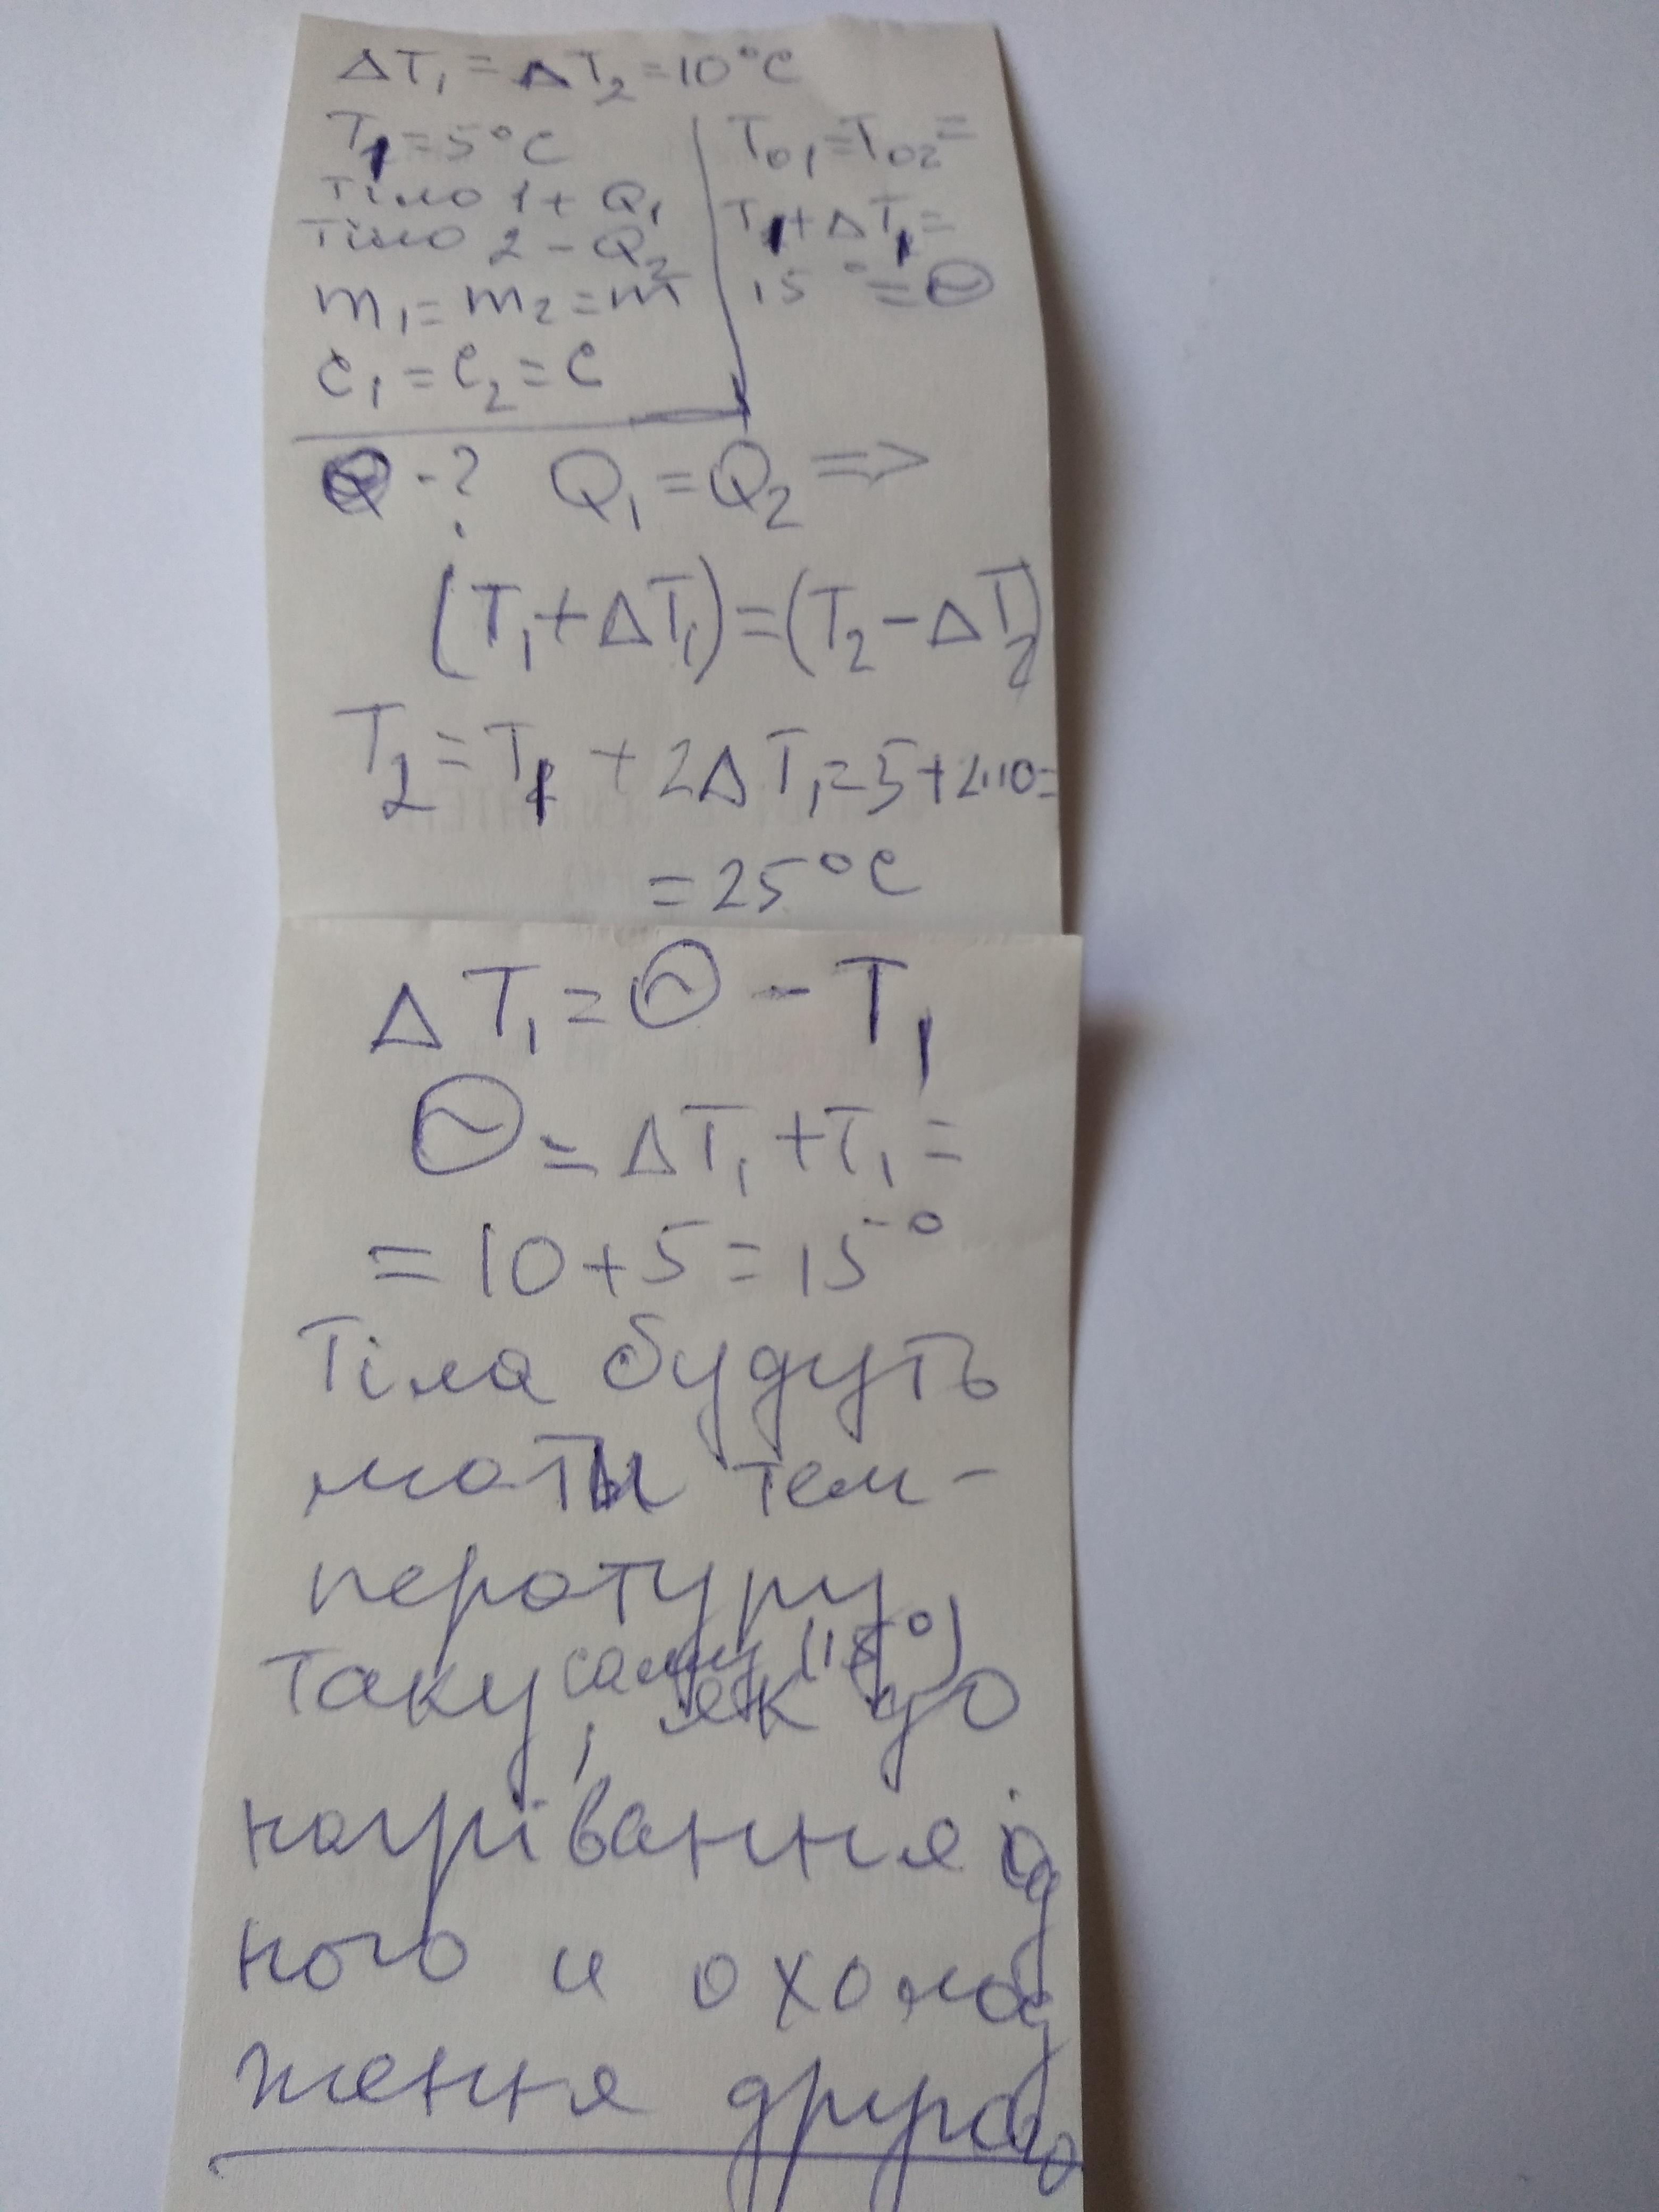 ΔT₁ = ΔT₂ = 10°C
T₁ = 5°C
Тіло 1 + Q₁
Тіло 2 - Q₂
m₁ = m₂ = m
c₁ = c₂ = c
T₀₁ = T₀₂ =
T₁ + ΔT₁ =
15° = Θ
Θ - ? Q₁ = Q₂ =>
(T₁ + ΔT₁) = (T₂ - ΔT₂)
T₂ = T₁ + 2ΔT₁ = 5 + 2·10 =
= 25°C
ΔT₁ = Θ - T₁
Θ = ΔT₁ + T₁ =
= 10 + 5 = 15°
Тіла будуть
мати тем-
пературу
таку саму (15°), як до
нагрівання од
ного и охолод
ження другого